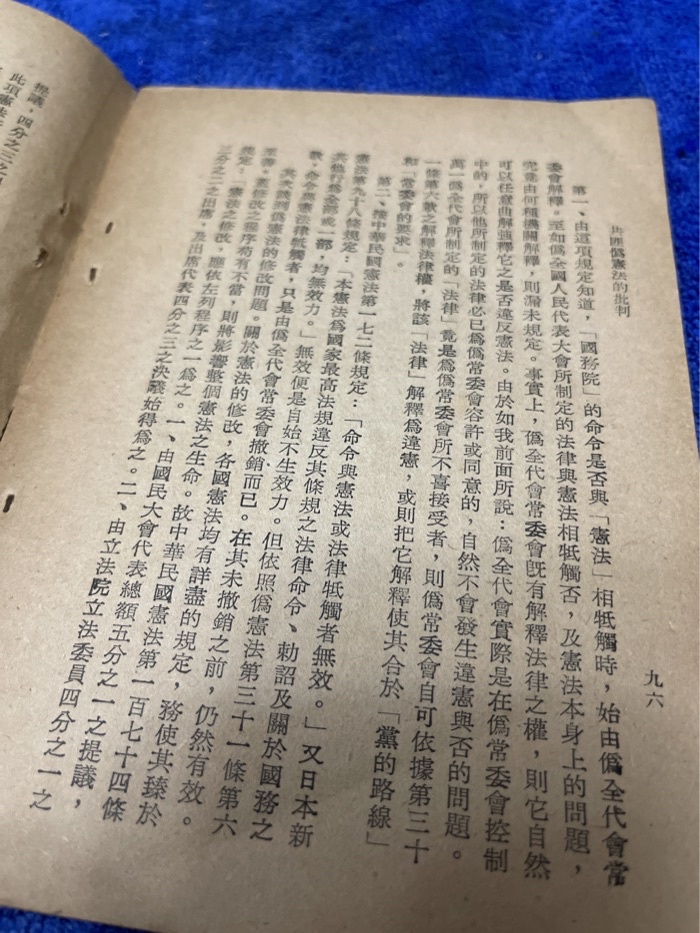 共匪僞憲法的批判
九六
第一、由這項規定知道，「國務院」的命令是否與「憲法」相牴觸時，始由僞全代會常
委會解釋。至如僞全國人民代表大會所制定的法律與憲法相牴觸否，及憲法本身上的問題，
究竟由何種機關解釋，則漏未規定。事實上，僞全代會常委會旣有解釋法律之權，則它自然
可以任意曲解強釋它之是否違反憲法。由於如我前面所說：僞全代會實際是在僞常委會控制
中的，所以他所制定的法律必已爲僞常委會容許或同意的，自然不會發生違憲與否的問題。
萬一僞全代會所制定的「法律」竟是爲僞常委會所不喜接受者，則僞常委會自可依據第三十
一條第六款之解釋法律權，將該「法律」解釋爲違憲，或則把它解釋使其合於「黨的路線」
和「常委會的要求」。
第二、按中華民國憲法第一七二條規定：「命令與憲法或法律牴觸者無效。」又日本新
憲法第九十八條規定：「本憲法爲國家最高法規違反其條規之法律命令、勅詔及關於國務之
其他行爲全部或一部，均無效力。」無效便是自始不生效力。但依照僞憲法第三十一條第六
款，命令與憲法牴觸者，只是由僞全代會常委會撤銷而已。在其未撤銷之前，仍然有效。
其次談到僞憲法的修改問題。關於憲法的修改，各國憲法均有詳盡的規定，務使其臻於
至善。蓋修改之程序苟有不當，則將影響整個憲法之生命。故中華民國憲法第一百七十四條
規定：「憲法之修改，應依左列程序之一爲之。一、由國民大會代表總額五分之一之提議，
三分之二之出席，及出席代表四分之三之決議始得爲之。二、由立法院立法委員四分之一之
提議，四分之三之
此項憲法